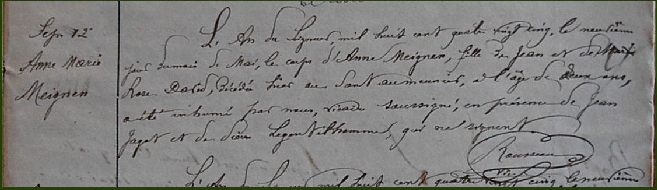 Sepr 12
Anne Marie
Meignen
L'An du Seigneur, mil huit cent quatre vingt cinq, le neuvième
jour du mois de Mai, le corps d'Anne Meignen, fille de Jean et de
Rose David, décédée hier au dont aumeunier, à l'âge de deux ans,
a été inhumé par nous, vicaire soussigné, en présence de Jean
Jagot et de Legentilhomme, qui ne signent
Rousseau
Vic.
L'An du Seigneur mil huit cent quatre vingt cinq, le neuvième